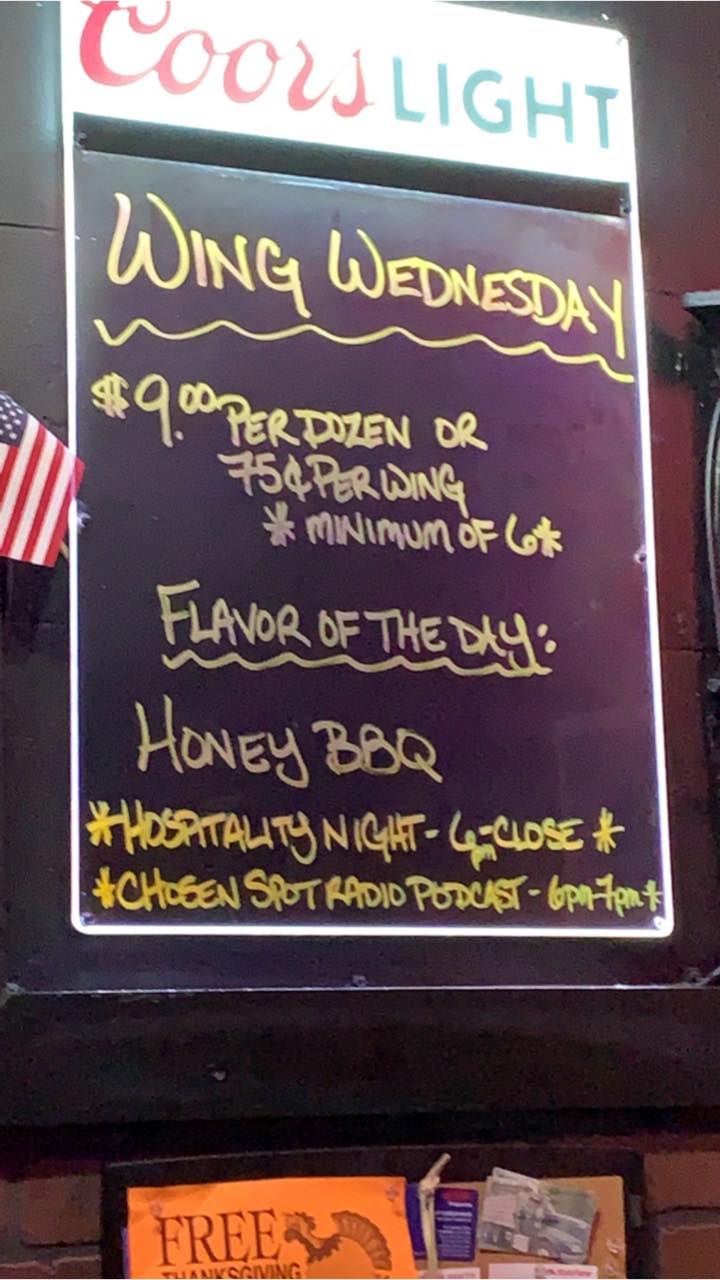 Coors LIGHT
WING WEDNESDAY
$9.00 PER DOZEN OR
75¢ PER WING
* MINIMUM OF 6 *
FLAVOR OF THE DAY:
HONEY BBQ
*HOSPITALITY NIGHT - 6pm-CLOSE *
*CHOSEN SPOT RADIO PODCAST - 6pm-7pm*
FREE
THANKSGIVING